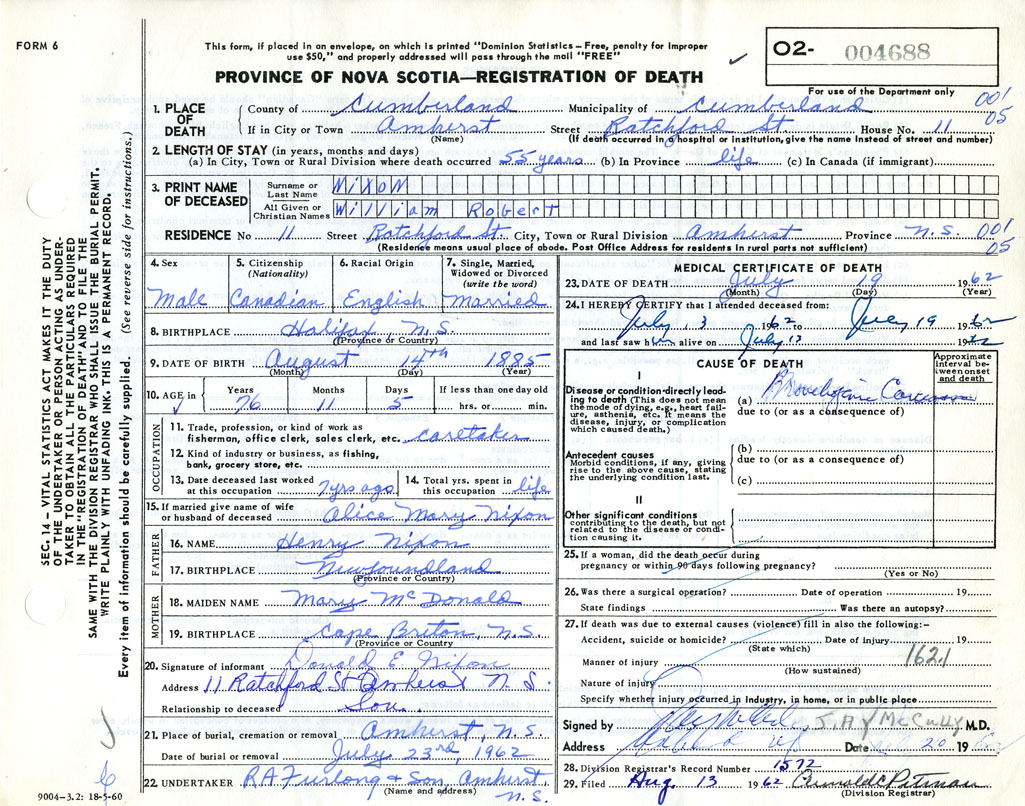 FORM 6
This form, if placed in an envelope, on which is printed "Dominion Statistics – Free, penalty for improper
use $50," and properly addressed will pass through the mail "FREE"
PROVINCE OF NOVA SCOTIA—REGISTRATION OF DEATH
O2- 004688
For use of the Department only
001
05
1. PLACE OF DEATH
County of Cumberland Municipality of Cumberland
If in City or Town Amherst Street Ratchford St. House No. 11
(Name) (If death occurred in hospital or institution, give the name instead of street and number)
2. LENGTH OF STAY (in years, months and days)
(a) In City, Town or Rural Division where death occurred 55 years (b) In Province life (c) In Canada (if immigrant)
3. PRINT NAME OF DECEASED
Surname or Last Name NIXON
All Given or Christian Names William Robert
RESIDENCE No 11 Street Ratchford St. City, Town or Rural Division Amherst Province N.S. 001
05
(Residence means usual place of abode. Post Office Address for residents in rural parts not sufficient)
4. Sex
Male
5. Citizenship (Nationality)
Canadian
6. Racial Origin
English
7. Single, Married, Widowed or Divorced (write the word)
Married
8. BIRTHPLACE Halifax, N.S.
(Province or Country)
9. DATE OF BIRTH August 14th 1885
(Month) (Day) (Year)
10. AGE in
Years Months Days If less than one day old
76 11 5 hrs. or min.
OCCUPATION
11. Trade, profession, or kind of work as
fisherman, office clerk, sales clerk, etc. caretaker
12. Kind of industry or business, as fishing,
bank, grocery store, etc.
13. Date deceased last worked at this occupation 7 yrs ago
14. Total yrs. spent in this occupation life
15. If married give name of wife
or husband of deceased Alice Mary Nixon
FATHER
16. NAME Henry Nixon
17. BIRTHPLACE Newfoundland
(Province or Country)
MOTHER
18. MAIDEN NAME Mary McDonald
19. BIRTHPLACE Cape Briton, N.S.
(Province or Country)
20. Signature of informant Donald E Nixon
Address 11 Ratchford St Amherst N.S.
Relationship to deceased Son.
21. Place of burial, cremation or removal Amherst, N.S.
Date of burial or removal July 23rd, 1962
22. UNDERTAKER R A Furlong & Son, Amherst
N.S.
(Name and address)
9004-3.2: 18-5-60
MEDICAL CERTIFICATE OF DEATH
23. DATE OF DEATH July 19 1962
(Month) (Day) (Year)
24. I HEREBY CERTIFY that I attended deceased from:
July, 3 1962 to July 19 1962
and last saw him alive on July 13 19
CAUSE OF DEATH
Approximate interval between onset and death
I
Disease or condition directly leading to death (This does not mean
the mode of dying, e.g., heart failure, asthenia, etc. It means the
disease, injury, or complication
which caused death.)
(a)
due to (or as a consequence of)
Antecedent causes
Morbid conditions, if any, giving
rise to the above cause, stating
the underlying condition last.
(b)
due to (or as a consequence of)
(c)
II
Other significant conditions
contributing to the death, but not
related to the disease or condition causing it.
25. If a woman, did the death occur during
pregnancy or within 90 days following pregnancy?
(Yes or No)
26. Was there a surgical operation? Date of operation 19
State findings Was there an autopsy?
27. If death was due to external causes (violence) fill in also the following:-
Accident, suicide or homicide? Date of injury 19
(State which)
Manner of injury 162.1
(How sustained)
Nature of injury
Specify whether injury occurred in industry, in home, or in public place
Signed by J.A.Y McCully M.D.
Address Date 20 19
28. Division Registrar's Record Number 1572
29. Filed Aug. 13 1962
(Division Registrar)
SEC. 14 – VITAL STATISTICS ACT MAKES IT THE DUTY
OF THE UNDERTAKER OR PERSON ACTING AS UNDER-
TAKER TO OBTAIN ALL THE PARTICULARS REQUIRED
IN THE "REGISTRATION OF DEATH" AND TO FILE THE
SAME WITH THE DIVISION REGISTRAR WHO SHALL ISSUE THE BURIAL PERMIT.
WRITE PLAINLY WITH UNFADING INK. THIS IS A PERMANENT RECORD.
Every item of information should be carefully supplied. (See reverse side for instructions.)